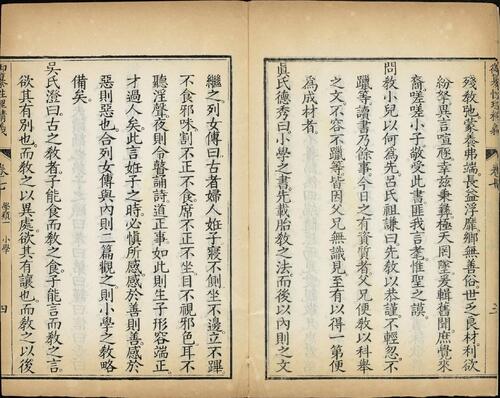 殘敎弛蒙養弗端長益浮靡鄉無善俗世乏良材利欲
紛拏異言喧豗幸玆秉彝極天罔墜爰輯舊聞庶覺來
裔嗟嗟小子敬受此書匪我言耄惟聖之謨
問敎小兒以何爲先呂氏祖謙曰先敎以恭謹不輕忽不
躐等讀書乃餘事今日之有資質者父兄便敎以科舉
之文不容不躐等皆因父兄無識見至有以得一第便
爲成材者
眞氏德秀曰小學之書先載胎敎之法而後以內則之文
繼之列女傳曰古者婦人姙子寢不側坐不邊立不蹕
不食邪味割不正不食席不正不坐目不視邪色耳不
聽淫聲夜則令瞽誦詩道正事如此則生子形容端正
才過人矣此言姙子之時必愼所感感於善則善感於
惡則惡也合列女傳與內則二篇觀之則小學之敎略
備矣
吳氏澄曰古之敎者子能食而敎之食子能言而敎之言
欲其有別也而敎之以異處欲其有讓也而敎之以後
御纂性理精義 卷七 學類一 小學 四